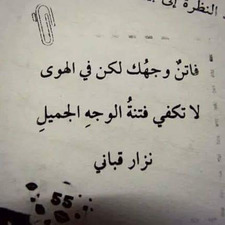 النظرة إلى
فاتنٌ وجهُك لكن في الهوى
لا تكفي فتنةُ الوجهِ الجميلِ
نزار قباني
55